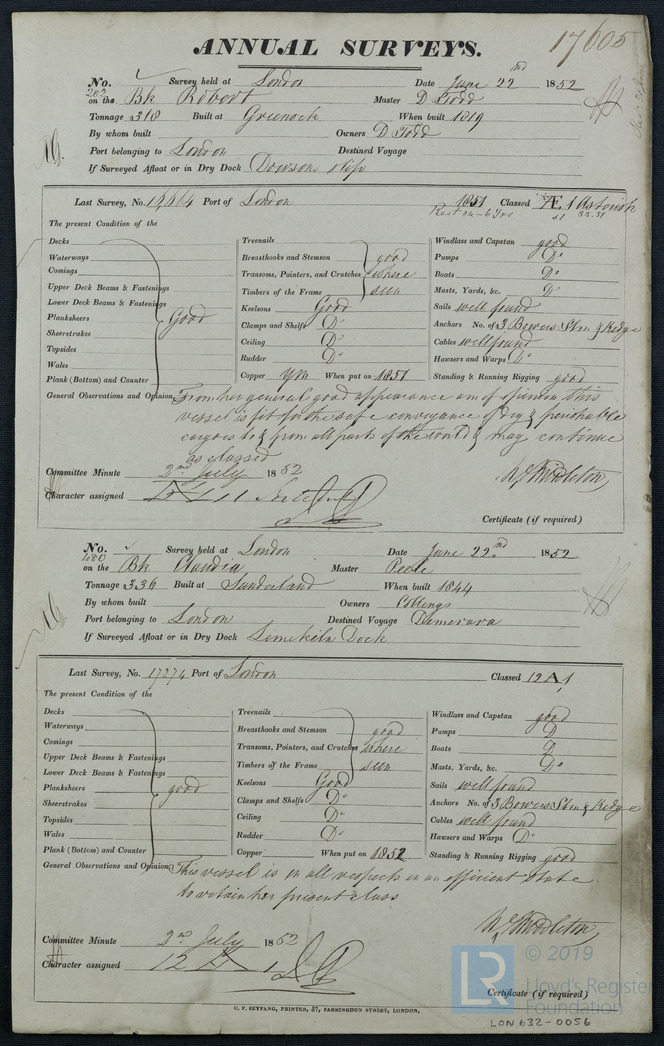 17605
ANNUAL SURVEYS.
No. 282 Survey held at London Date June 22nd 1852
on the Bk Robert Master D Todd
Tonnage 318 Built at Greenock When built 1819
By whom built Owners D Todd
Port belonging to London Destined Voyage
If Surveyed Afloat or in Dry Dock Dowson slip
Last Survey, No. Port of London 1851 Classed Æ 1
The present Condition of the
Decks Treenails Windlass and Capstan good
Waterways Breasthooks and Stemson good Pumps Do
Comings Transoms, Pointers, and Crutches where Boats Do
Upper Deck Beams & Fastenings Timbers of the Frame seen Masts, Yards, &c. Do
Lower Deck Beams & Fastenings Keelsons Good Sails well found
Planksheers Good Clamps and Shelfs Do Anchors No. of 3 Bowers Strm & Kedge
Sheerstrakes Ceiling Do Cables well found
Topsides Rudder Do Hawsers and Warps Do
Wales Copper When put on 1851 Standing & Running Rigging good
Plank (Bottom) and Counter
General Observations and Opinion From her general good appearance am of opinion this
vessel is fit for the safe conveyance of Dry & perishable
cargoes to & from all parts of the world & may continue
as classed
Committee Minute 2nd July 1852 Middleton
Character assigned
Certificate (if required)
No. Survey held at London Date June 22nd 1852
on the Bk Claudia Master Peele
Tonnage 336 Built at Sunderland When built 1844
By whom built Owners Collings
Port belonging to London Destined Voyage Demerara
If Surveyed Afloat or in Dry Dock Limekiln Dock
Last Survey, No. 17274 Port of London Classed 12 A 1
The present Condition of the
Decks Treenails Windlass and Capstan good
Waterways Breasthooks and Stemson good Pumps Do
Comings Transoms, Pointers, and Crutches where Boats Do
Upper Deck Beams & Fastenings Timbers of the Frame seen Masts, Yards, &c. Do
Lower Deck Beams & Fastenings Keelsons Good Sails well found
Planksheers good Clamps and Shelfs Do Anchors No. of 3 Bowers Strm & Kedge
Sheerstrakes Ceiling Do Cables well found
Topsides Rudder Do Hawsers and Warps Do
Wales Copper When put on 1852 Standing & Running Rigging good
Plank (Bottom) and Counter
General Observations and Opinion This vessel is in all respects in an efficient state
to retain her present class
Middleton
Committee Minute 2nd July 1852
Character assigned 12 A 1
Certificate (if required)
C. F. SEYFANG, PRINTER, 57, FARRINGDON STREET, LONDON.
LR © 2019
Lloyd's Register
Foundation
LON 632-0056